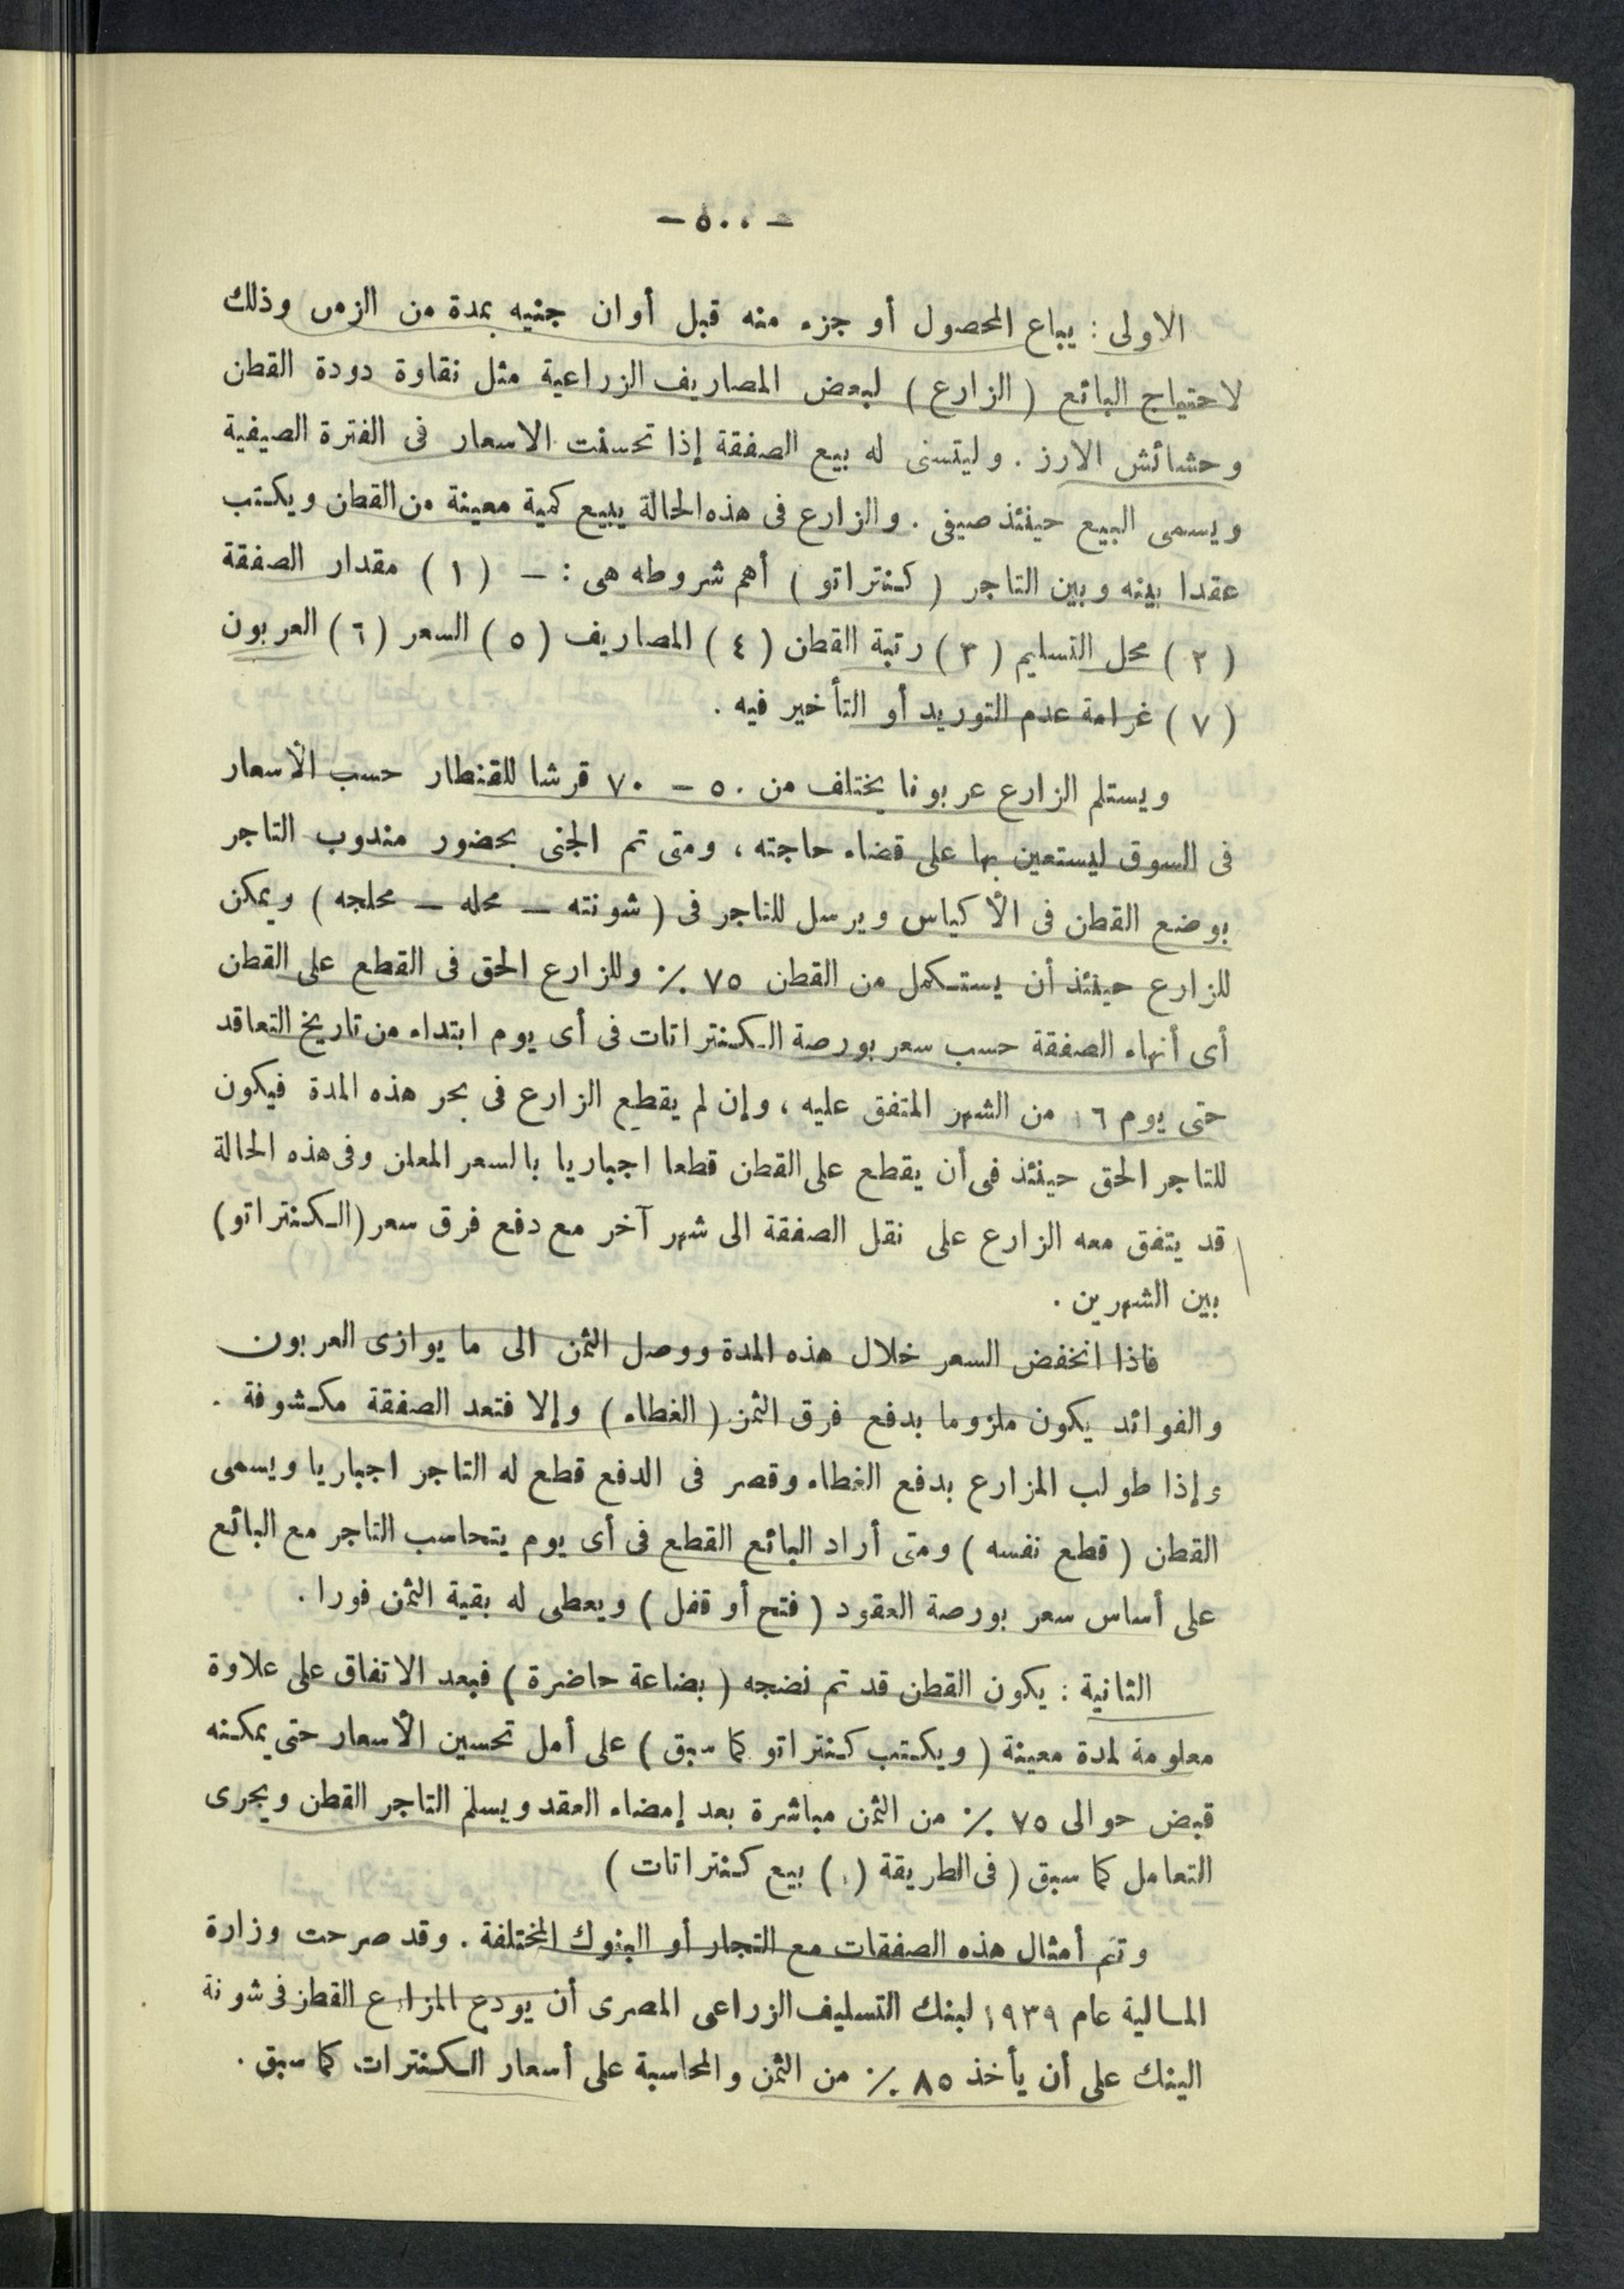 — ٥٠٠ —
الاولى : يباع المحصول أو جزء منه قبل أوان جنيه بمدة من الزمن وذلك
لاحتياج البائع ( الزارع ) لبعض المصاريف الزراعية مثل نقاوة دودة القطن
وحشائش الارز . وليتسنى له بيع الصفقة إذا تحسنت الاسعار فى الفترة الصيفية
ويسمى البيع حينئذ صيفى . والزارع فى هذه الحالة يبيع كمية معينة من القطن ويكتب
عقدا بينه وبين التاجر ( كنتراتو ) أهم شروطه هى : — ( ١ ) مقدار الصفقة
( ٢ ) محل التسليم ( ٣ ) رتبة القطن ( ٤ ) المصاريف ( ٥ ) السعر ( ٦ ) العربون
( ٧ ) غرامة عدم التوريد أو التأخير فيه .
ويستلم الزارع عربونا يختلف من ٥٠ — ٧٠ قرشا للقنطار حسب الأسعار
فى السوق ليستعين بها على قضاء حاجته ، ومتى تم الجنى بحضور مندوب التاجر
بوضع القطن فى الأكياس ويرسل للتاجر فى ( شونته — محله — محلجه ) ويمكن
للزارع حينئذ أن يستكمل من القطن ٧٥ ٪ وللزارع الحق فى القطع على القطن
أى أنهاء الصفقة حسب سعر بورصة الكنتراتات فى أى يوم ابتداء من تاريخ التعاقد
حتى يوم ١٦ من الشهر المتفق عليه ، وإن لم يقطع الزارع فى بحر هذه المدة فيكون
للتاجر الحق حينئذ فى أن يقطع على القطن قطعا اجباريا بالسعر المعلن وفى هذه الحالة
قد يتفق معه الزارع على نقل الصفقة الى شهر آخر مع دفع فرق سعر ( الكنتراتو )
بين الشهرين .
فاذا انخفض السعر خلال هذه المدة ووصل الثمن الى ما يوازى العربون
والفوائد يكون ملزوما بدفع فرق الثمن ( الغطاء ) وإلا فتعد الصفقة مكشوفة .
وإذا طولب المزارع بدفع الغطاء وقصر فى الدفع قطع له التاجر اجباريا ويسمى
القطن ( قطع نفسه ) ومتى أراد البائع القطع فى أى يوم يتحاسب التاجر مع البائع
على أساس سعر بورصة العقود ( فتح أو قفل ) ويعطى له بقية الثمن فورا .
الثانية : يكون القطن قد تم نضجه ( بضاعة حاضرة ) فبعد الاتفاق على علاوة
معلومة لمدة معينة ( ويكتب كنتراتو كما سبق ) على أمل تحسين الأسعار حتى يمكنه
قبض حوالى ٧٥ ٪ من الثمن مباشرة بعد إمضاء العقد ويسلم التاجر القطن ويجرى
التعامل كما سبق ( فى الطريقة (١) بيع كنتراتات )
وتتم أمثال هذه الصفقات مع التجار أو البنوك المختلفة . وقد صرحت وزارة
المالية عام ١٩٣٩ لبنك التسليف الزراعى المصرى أن يودع المزارع القطن فى شونة
البنك على أن يأخذ ٨٥ ٪ من الثمن والمحاسبة على أسعار الكنترات كما سبق .